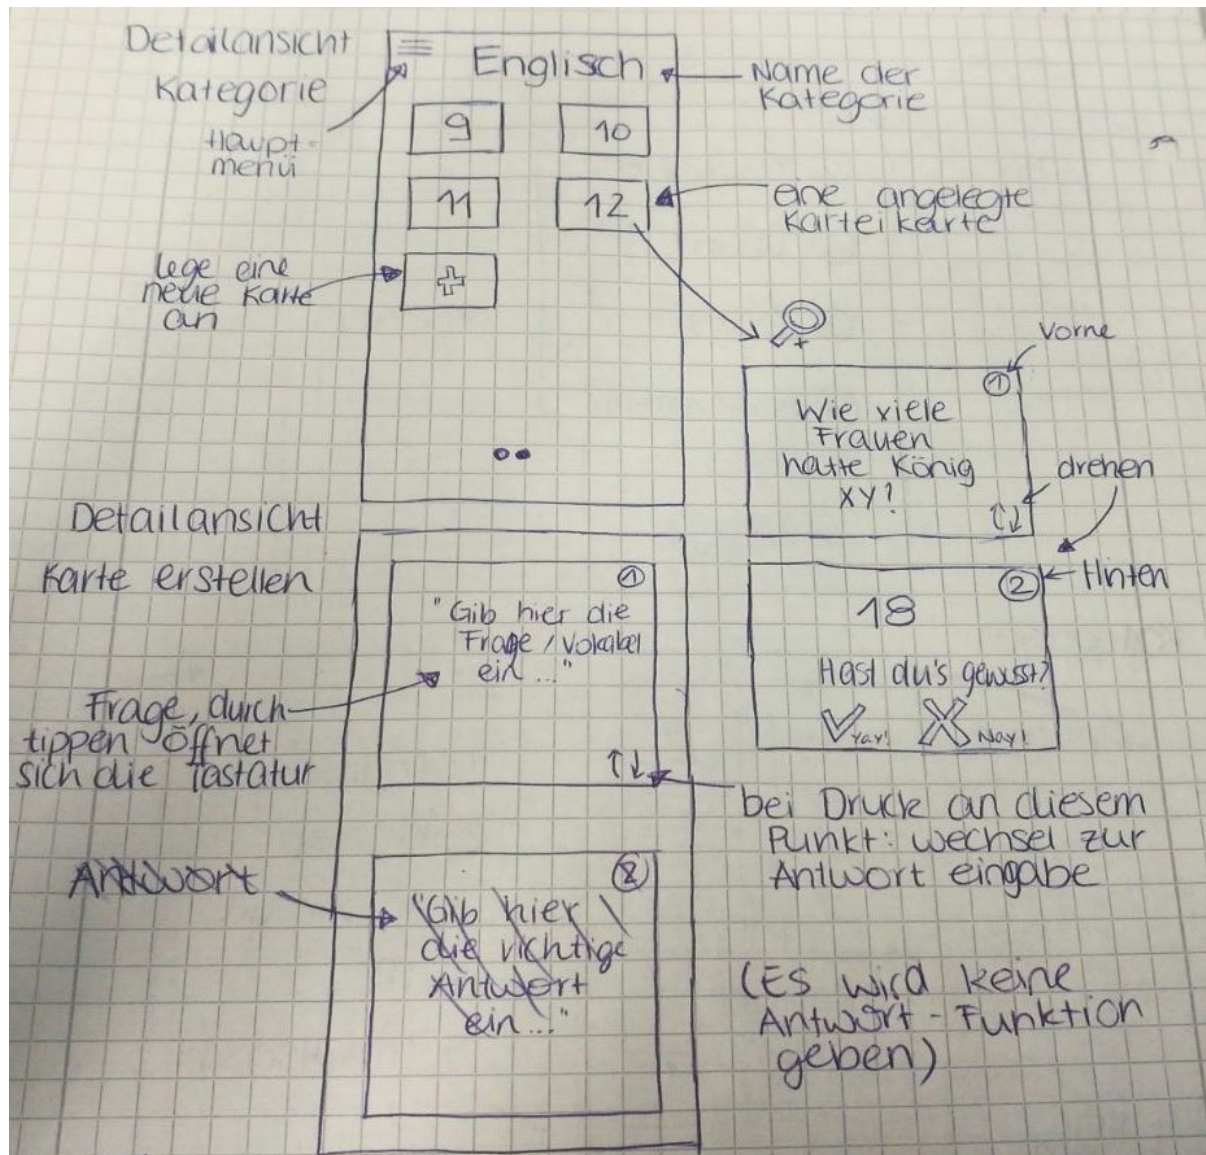 Detailansicht
Kategorie
Haupt-
menü
Englisch
Name der
Kategorie
9
10
11
12
eine angelegte
Karteikarte
lege eine
neue Karte
an
+
Vorne
1
Wie viele
Frauen
hatte König
XY?
drehen
2
Hinten
18
Hast du's gewusst?
Yay!
Nay!
Detailansicht
Karte erstellen
1
"Gib hier die
Frage/Vokabel
ein..."
Frage, durch
tippen öffnet
sich die Tastatur
bei Druck an diesem
Punkt: wechsel zur
Antwort eingabe
Antwort
2
"Gib hier
die richtige
Antwort
ein..."
(Es wird keine
Antwort-Funktion
geben)